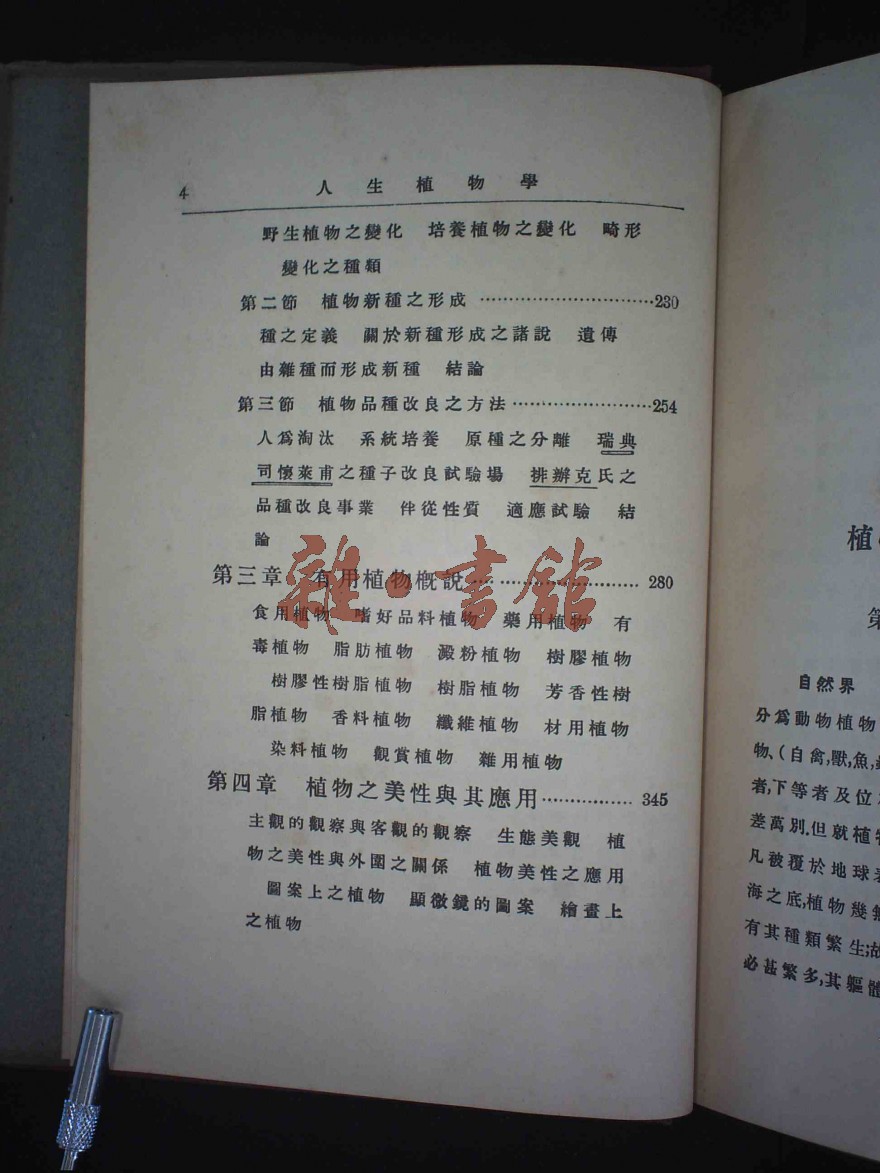 4 人生植物學
野生植物之變化 培養植物之變化 畸形
變化之種類
第二節 植物新種之形成 …………………………230
種之定義 關於新種形成之諸說 遺傳
由雜種而形成新種 結論
第三節 植物品種改良之方法……………………254
人爲淘汰 系統培養 原種之分離 瑞典
司懷萊甫之種子改良試驗場 排辦克氏之
品種改良事業 伴從性質 適應試驗 結
論
第三章 有用植物概說………………………… 280
食用植物 嗜好品料植物 藥用植物 有
毒植物 脂肪植物 澱粉植物 樹膠植物
樹膠性樹脂植物 樹脂植物 芳香性樹
脂植物 香料植物 纖維植物 材用植物
染料植物 觀賞植物 雜用植物
第四章 植物之美性與其應用…………… 345
主觀的觀察與客觀的觀察 生態美觀 植
物之美性與外圍之關係 植物美性之應用
圖案上之植物 顯微鏡的圖案 繪畫上
之植物
雜·書館
植
第
自然界
分爲動物植物
物、(自禽,獸,魚,
者,下等者及位
差萬別.但就植物
凡被覆於地球
海之底,植物幾無
有其種類繁生;故
必甚繁多,其軀體